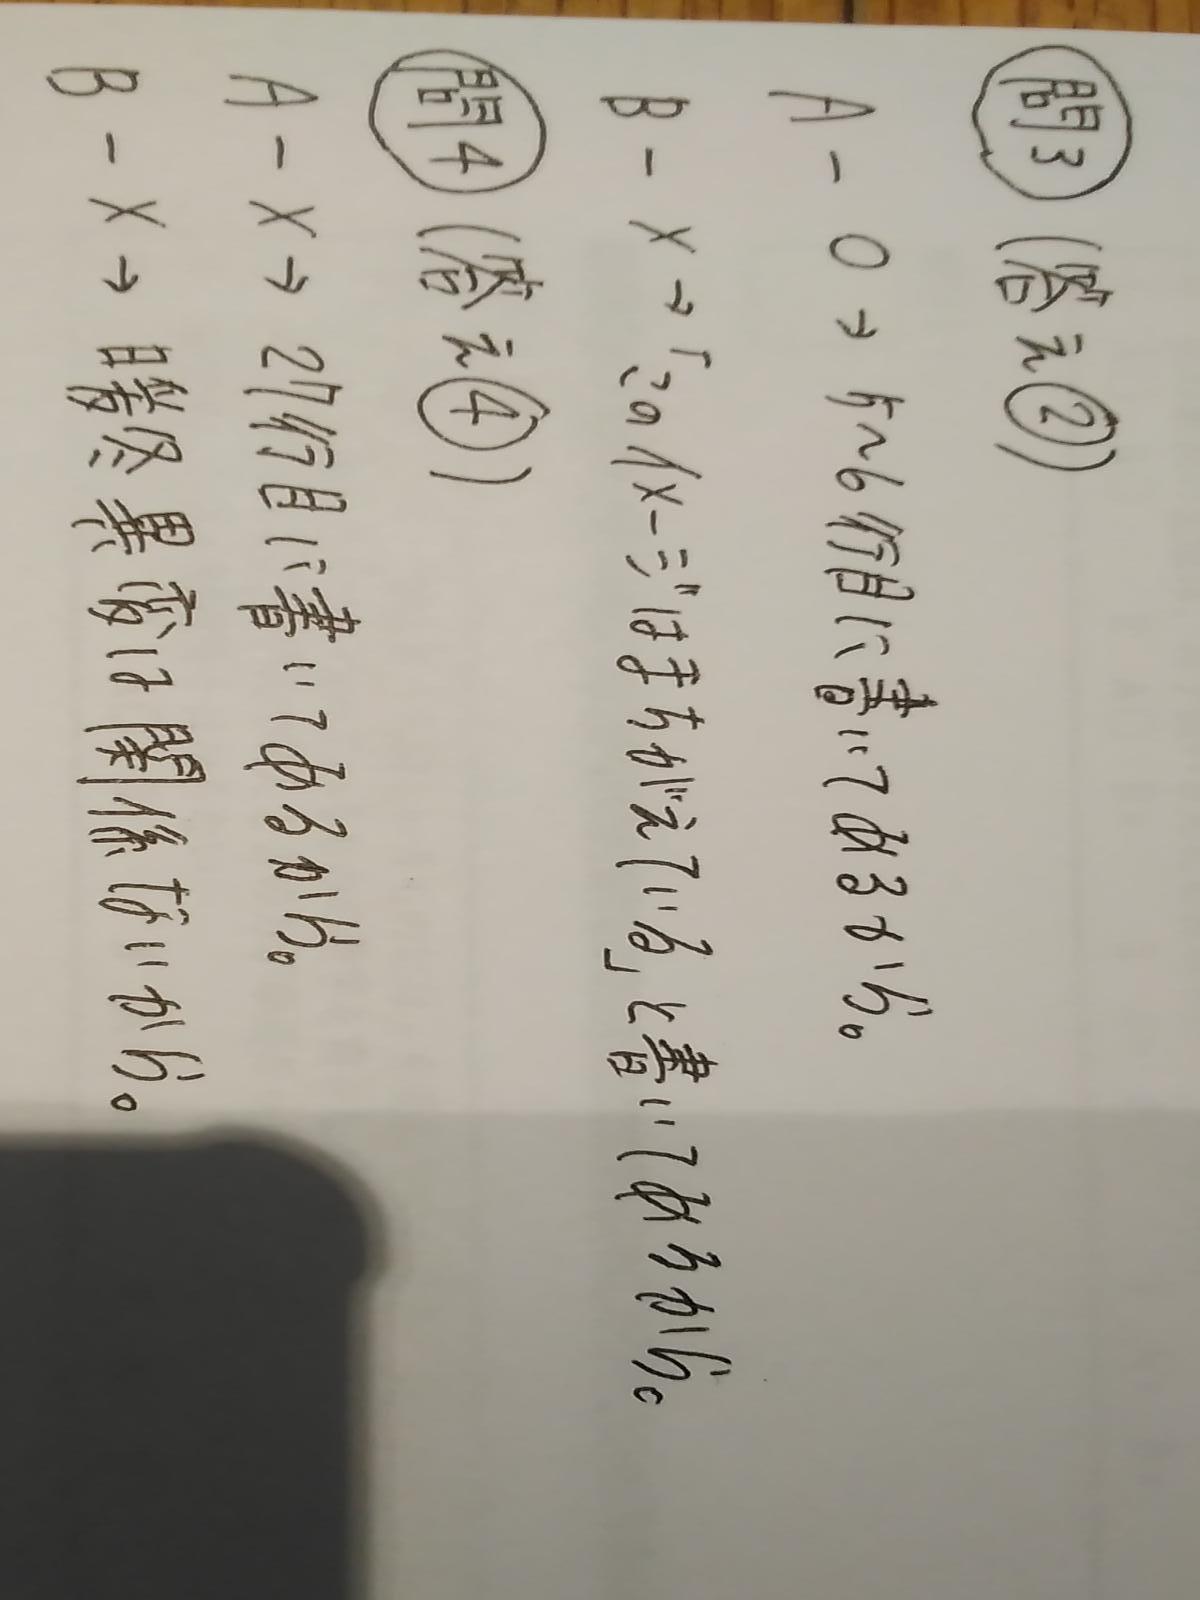 問3 (答え②)
A-○→5~6行目に書いてあるから。
B-×→「このイメージはまちがえている」と書いてあるから。
問4 (答え④)
A-×→27行目に書いてあるから。
B-×→勝必黒富は関係ないから。